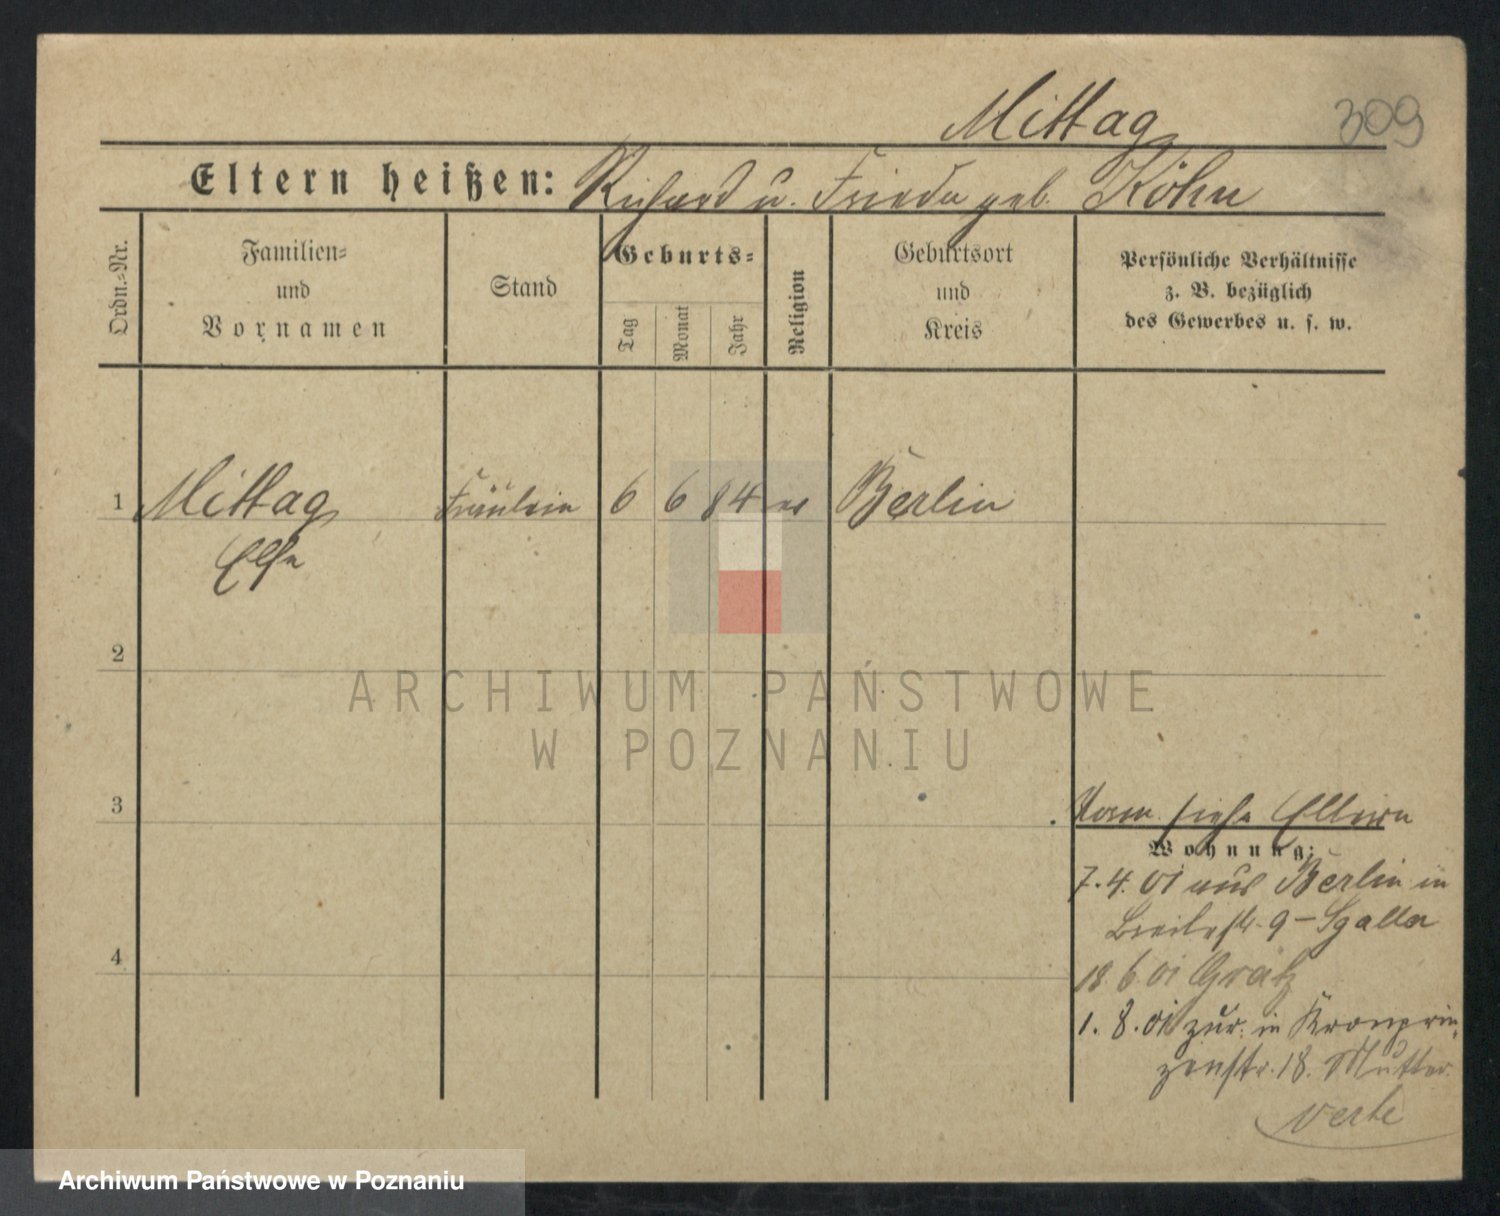 Mittag
309
Eltern heißen: Richard u. Frieda geb. Köhn
Ordn.-Nr.
Familien-
und
Vornamen
Stand
Geburts-
Tag
Monat
Jahr
Religion
Geburtsort
und
Kreis
Persönliche Verhältnisse
z. B. bezüglich
des Gewerbes u. s. w.
1 Mittag Fräulein 6 6 84 ev Berlin
Else
2
ARCHIWUM PAŃSTWOWE
W POZNANIU
3
siehe Eltern
Wohnung:
7. 4. 01 aus Berlin in
Breitestr. 9 - Sgaller
4
18 6 01 Grätz
1. 8. 01 zur. in Kronprin-
zenstr. 18. Mutter.
verte
Archiwum Państwowe w Poznaniu